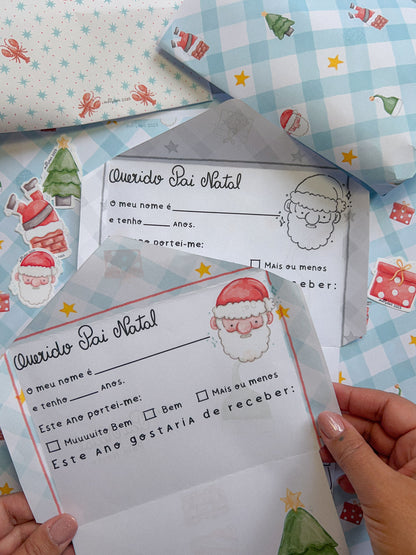 Querido Pai Natal
O meu nome é
e tenho____ anos.
Este ano portei-me:
Mais ou menos
receber:
Querido Pai Natal
O meu nome é
e tenho____ anos.
Este ano portei-me:
Muuuuito Bem
Bem
Mais ou menos
Este ano gostaria de receber: